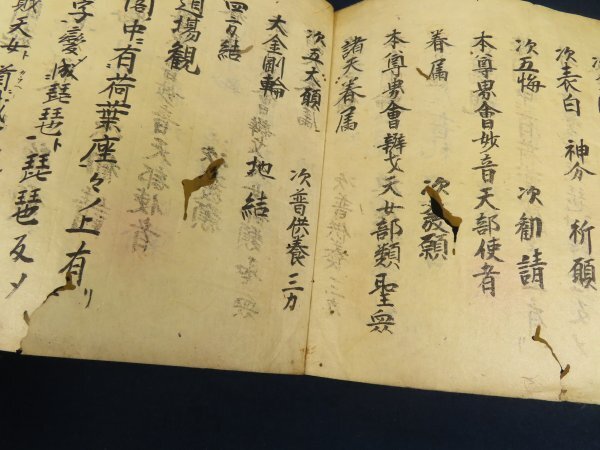 次表白 神分 祈願
次五悔 次勧請
本尊界會妙音天部使者
眷属 次發願
本尊界會辨才天女部類聖衆
諸天眷属
次五大願 次普供養三力
大金剛輪 地結
四方結
道場観
中有荷葉座々ノ上有リ
字變成琵琶ト琵琶反メ
天女